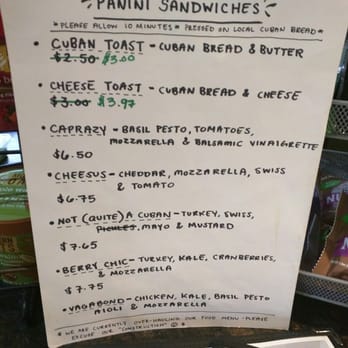 PANINI SANDWICHES
*PLEASE ALLOW 10 MINUTES* PRESSED ON LOCAL CUBAN BREAD*
• CUBAN TOAST - CUBAN BREAD & BUTTER
$2.50 $3.00
• CHEESE TOAST - CUBAN BREAD & CHEESE
$3.00 $3.97
• CAPRAZY - BASIL PESTO, TOMATOES,
MOZZARELLA & BALSAMIC VINAIGRETTE
$6.50
• CHEESUS - CHEDDAR, MOZZARELLA, SWISS
& TOMATO
$6.75
• NOT (QUITE) A CUBAN - TURKEY, SWISS,
PICKLES, MAYO & MUSTARD
$7.65
• BERRY CHIC - TURKEY, KALE, CRANBERRIES,
& MOZZARELLA
$7.75
• VAGABOND - CHICKEN, KALE, BASIL PESTO
AIOLI & MOZZARELLA
* WE ARE CURRENTLY OVER-HAULING OUR FOOD MENU - PLEASE
EXCUSE OUR "CONSTRUCTION" ☺ *